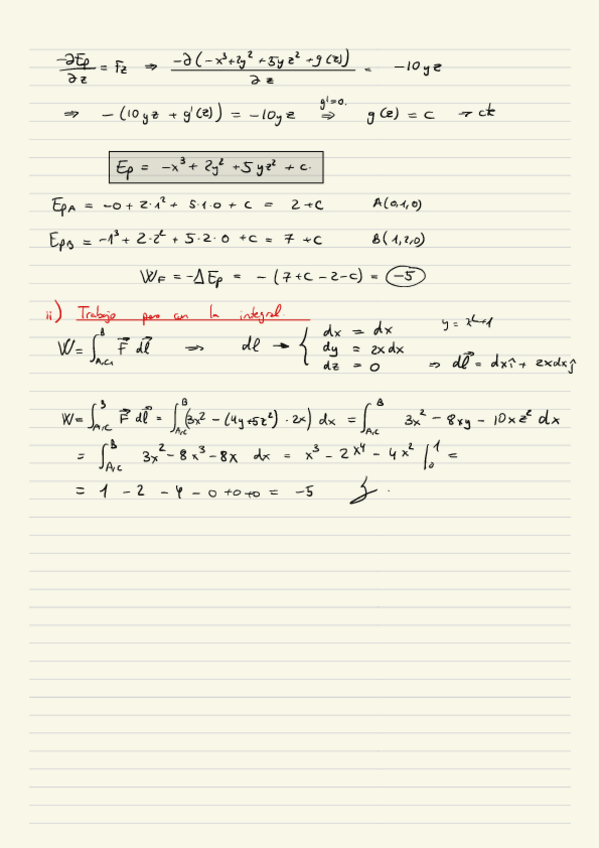 -∂Ep/∂z = Fz ⇒ -∂(-x³+2y²+5yz²+g(z))/∂z = -10yz
⇒ -(10yz + g'(z)) = -10yz g'=0. ⇒ g(z) = c → ctе
Ep = -x³ + 2y² + 5yz² + c.
EpA = -0 + 2·1² + 5·1·0 + c = 2+c A(0,1,0)
EpB = -1³ + 2·2² + 5·2·0 + c = 7 + c B(1,2,0)
WF = -ΔEp = -(7+c-2-c) = -5
ii) Trabajo pero con la integral.
W = ∫A,C₁^B F⃗ dl⃗ ⇒ dl → { dx = dx y = x²+1
dy = 2xdx
dz = 0 ⇒ dl⃗ = dxî + 2xdxĵ
W = ∫A,C^B F⃗ dl⃗ = ∫A,C^B (3x² - (4y+5z²)·2x) dx = ∫A,C^B 3x² - 8xy - 10xz² dx
= ∫A,C^B 3x² - 8x³ - 8x dx = x³ - 2x⁴ - 4x² |₀¹ =
= 1 - 2 - 4 - 0 + 0 + 0 = -5